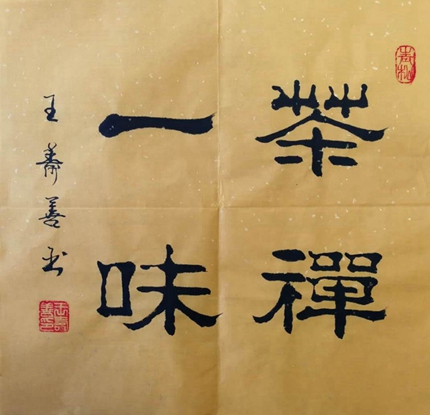 茶禪
一味
王壽善書